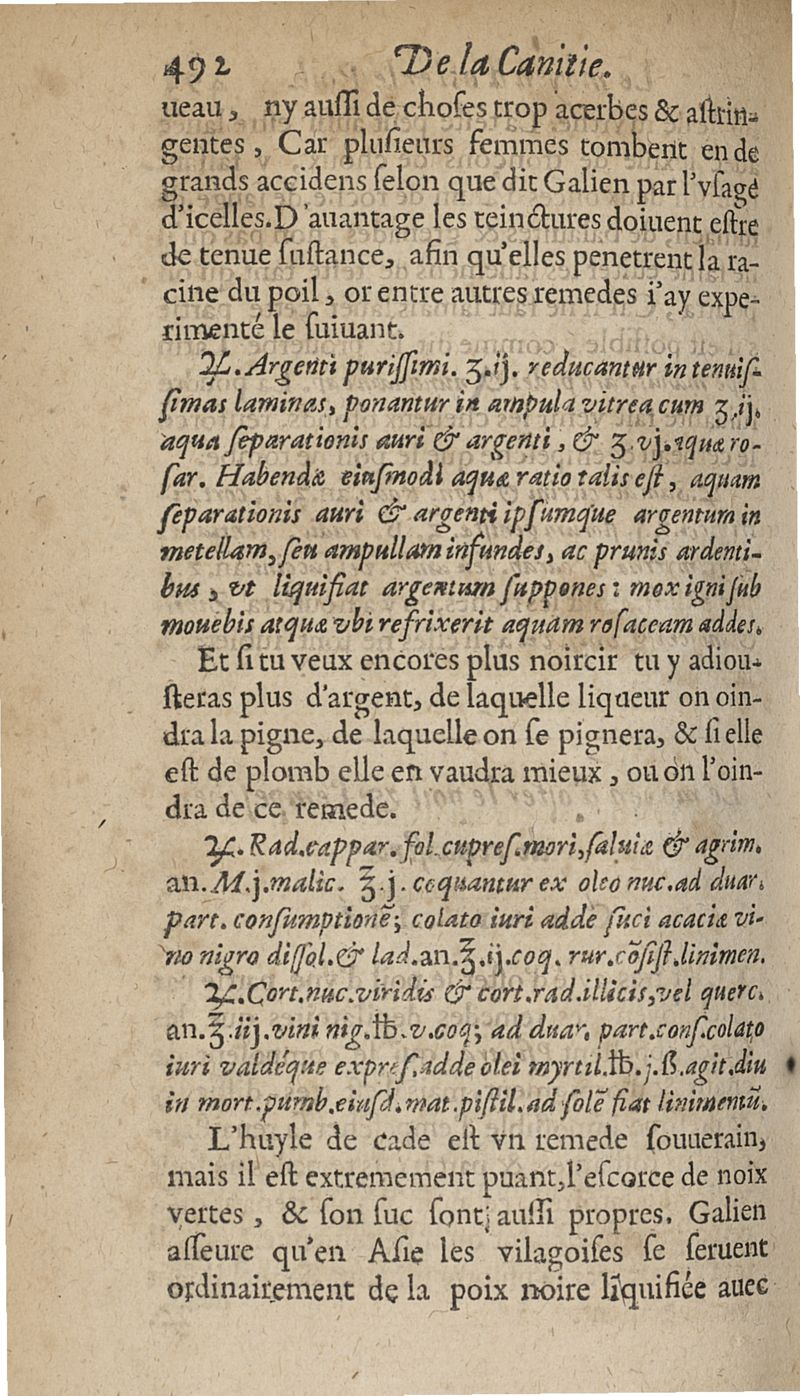 492 De la Canitie.
ueau, ny auſſi de choſes trop acerbes & aſtrin-
gentes, Car pluſieurs femmes tombent en de
grands accidens ſelon que dit Galien par l'vſage
d'icelles. D'auantage les teinctures doiuent eſtre
de tenue ſuſtance, afin qu'elles penetrent la ra-
cine du poil, or entre autres remedes i'ay expe-
rimenté le ſuiuant.
♃. Argenti puriſſimi. ʒ.ij. reducantur in tenuiſ-
ſimas laminas, ponantur in ampula vitrea cum ʒ.ij.
aqua ſeparationis auri & argenti, & ʒ.vj. aquæ ro-
ſar. Habendæ eiuſmodi aquæ ratio talis eſt, aquam
ſeparationis auri & argenti ipſumque argentum in
metellam, ſeu ampullam infundes, ac prunis ardenti-
bus, vt liquifiat argentum ſuppones: mox igni ſub
mouebis atquæ vbi refrixerit aquam roſaceam addes.
Et ſi tu veux encores plus noircir tu y adiou-
ſteras plus d'argent, de laquelle liqueur on oin-
dra la pigne, de laquelle on ſe pignera, & ſi elle
eſt de plomb elle en vaudra mieux, ou on l'oin-
dra de ce remede.
♃. Rad. cappar. fol. cupreſ. mori, ſaluiæ & agrim.
an. M.j. malic. ℥.j. coquantur ex oleo nuc. ad duar.
part. conſumptionē; colato iuri adde ſuci acaciæ vi-
no nigro diſſol. & lad. an. ℥.ij. coq. rur. cõſiſt. linimen.
♃. Cort. nuc. viridis & cort. rad. illicis, vel querc.
an. ℥.iij. vini nig. ℔.v. coq; ad duar. part. conſ. colato
iuri valdéque expreſ. adde olei myrtil. ℔.j.ß. agit. diu
in mort. pumb. eiuſd. mat. piſtil. ad ſolē fiat linimentū.
L'huyle de cade eſt vn remede ſouuerain,
mais il eſt extremement puant, l'eſcorce de noix
vertes, & ſon ſuc ſont auſſi propres. Galien
aſſeure qu'en Aſie les vilagoiſes ſe ſeruent
ordinairement de la poix noire liquifiée auec